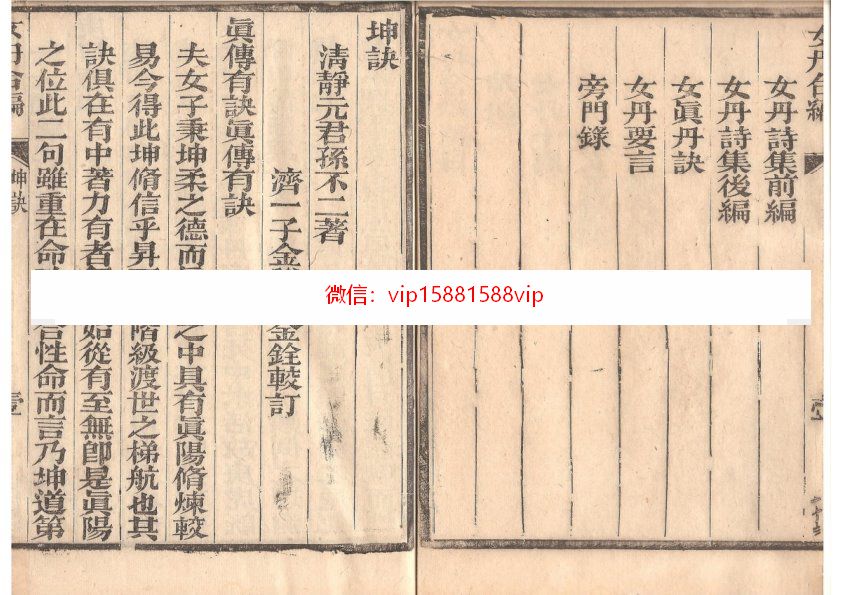 女丹合編
女丹詩集前編
女丹詩集後編
女眞丹訣
女丹要言
旁門錄
坤訣
清靜元君孫不二著
濟一子金 金銓較訂
眞傳有訣眞傳有訣
夫女子秉坤柔之德而 之中具有眞陽脩煉較
易今得此坤脩信乎昇 階級渡世之梯航也其
訣俱在有中著力有者 如從有至無卽是眞陽
之位此二句雖重在命 合性命而言乃坤道第
女丹合編
坤訣
壹
微信：vip15881588vip